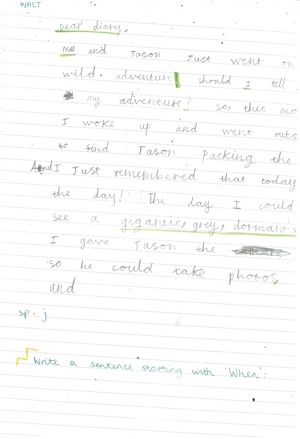 WALT
Dear diary,
me and Jason Just went on
wild. adventure should I tell
my adventure? So, this mo
I woke up and went outs
to find Jason packing the
And I Just remembered that today
the day! The day I could
see a gigantic, grey, dormant
I gave Jason the
so he could take photos,
and
sp. j
Write a sentence starting with 'When':